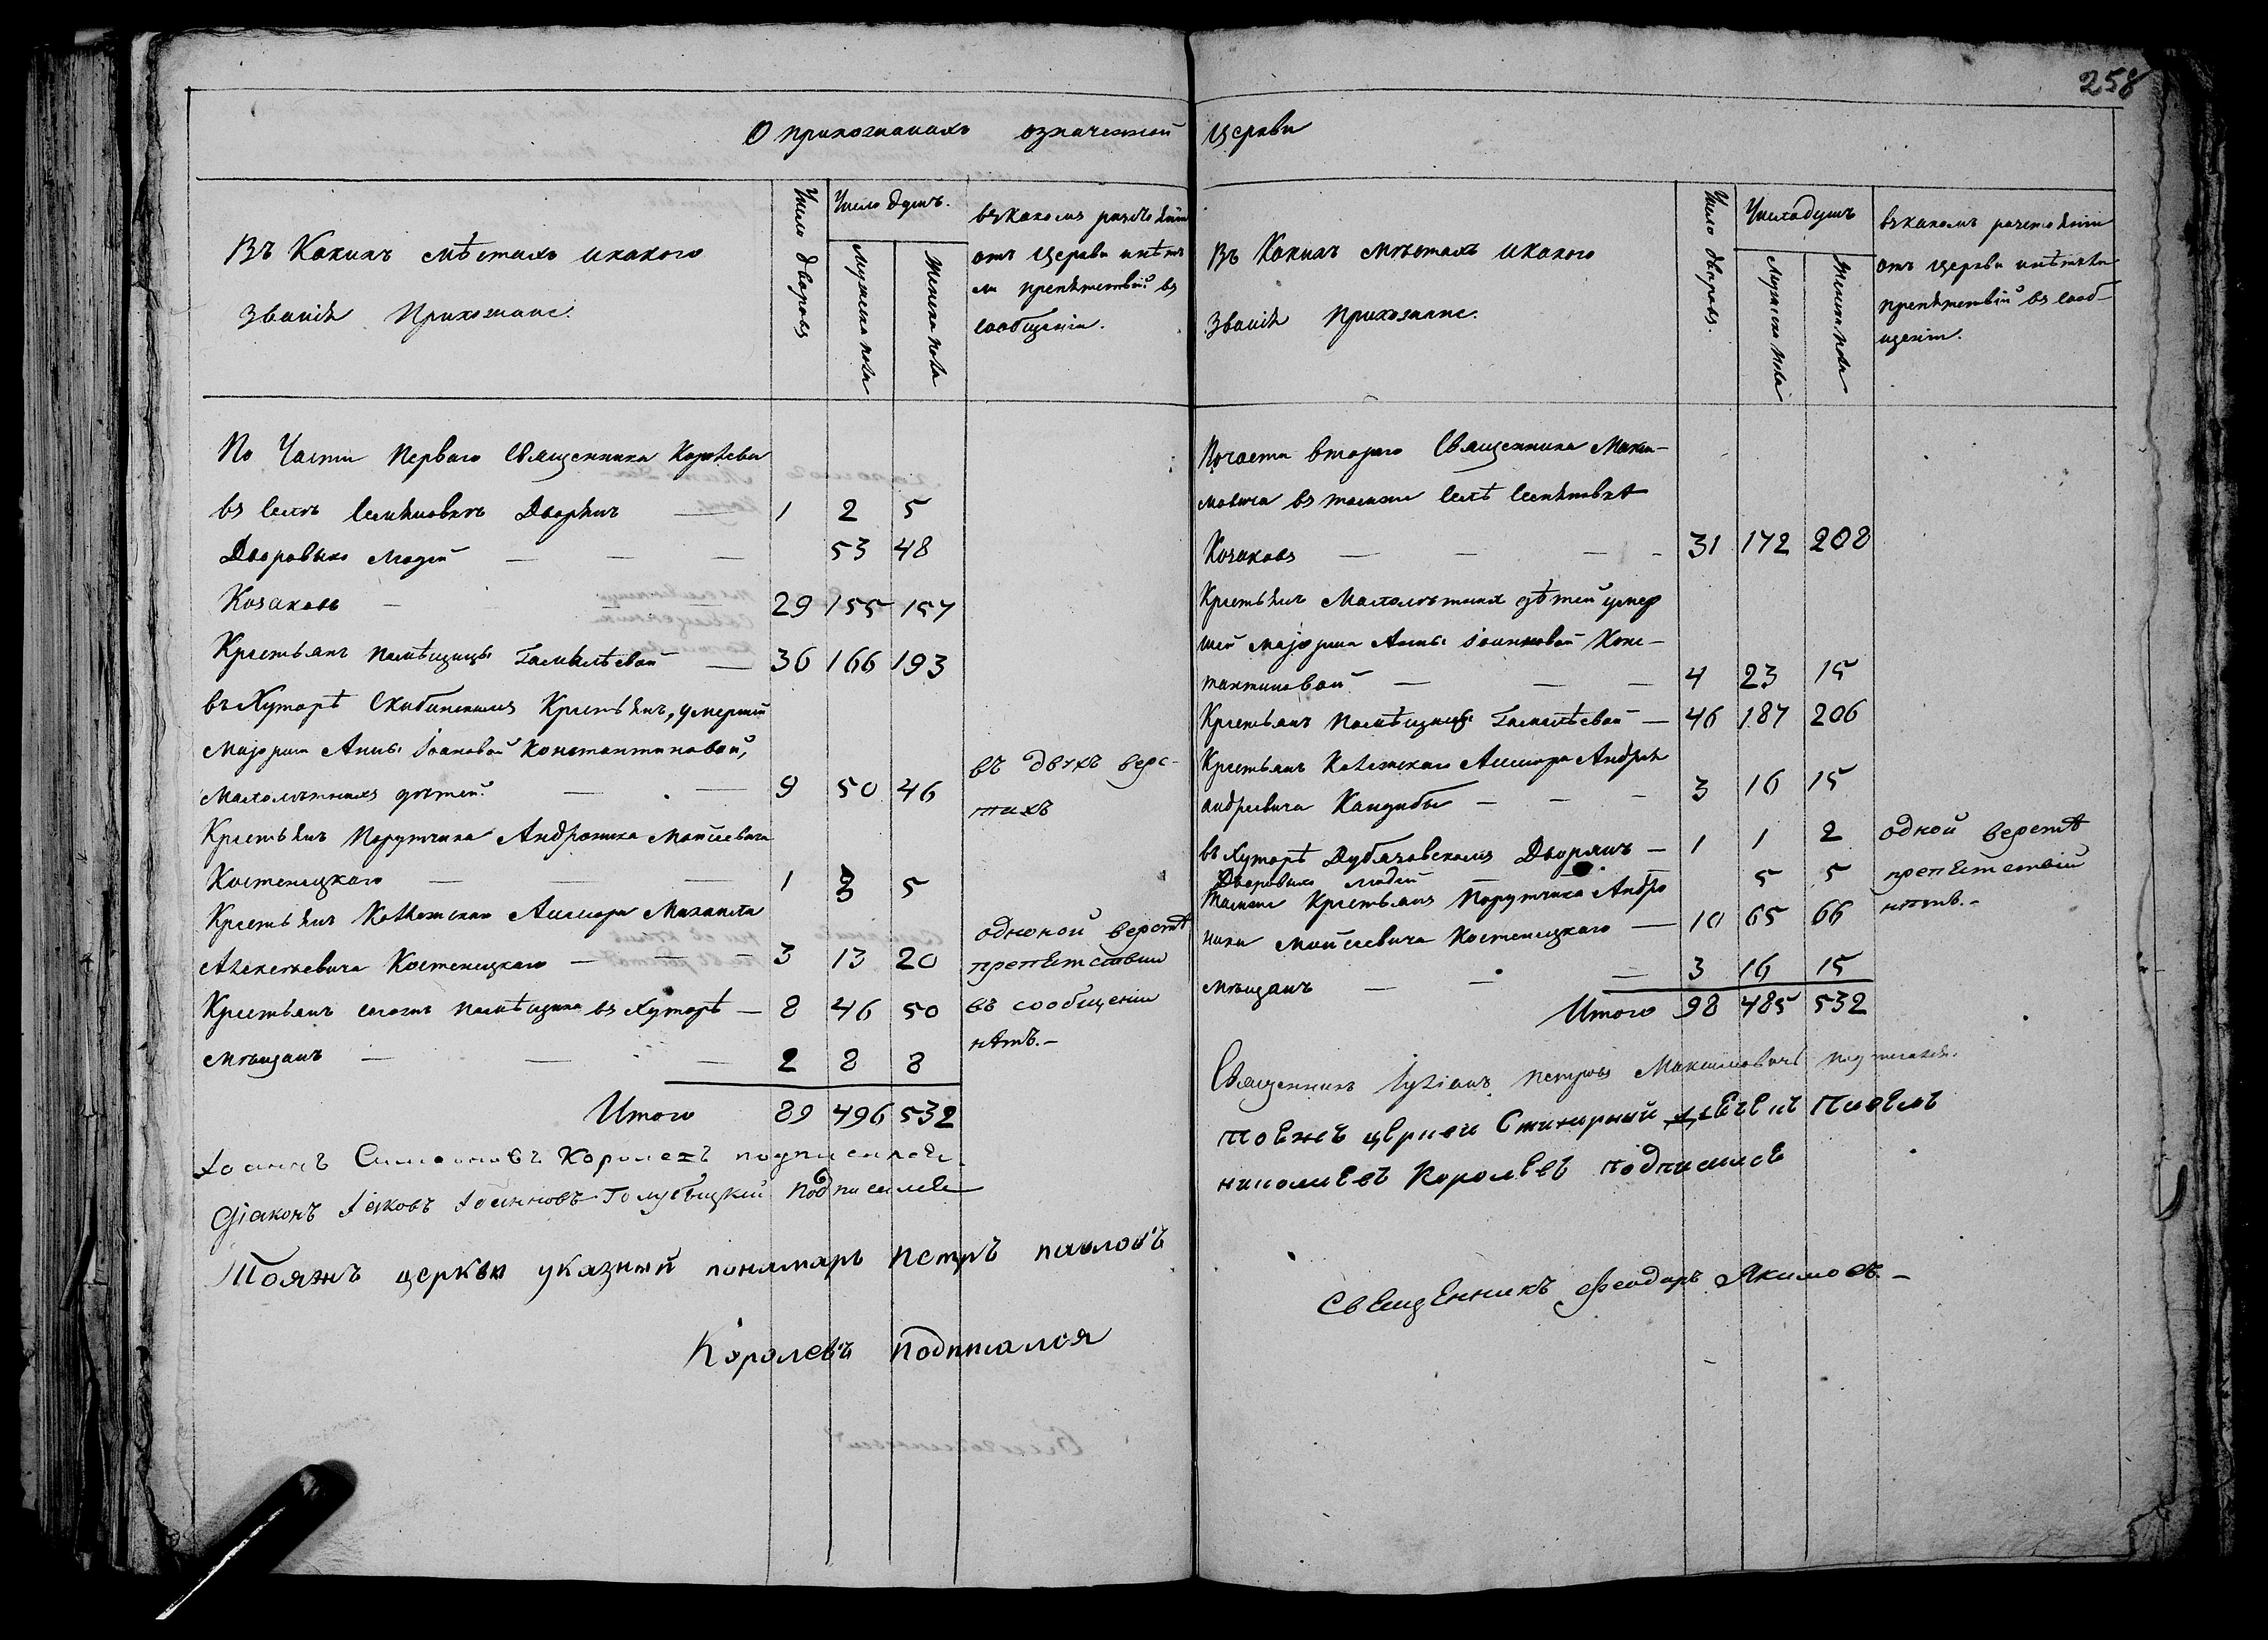 258
О прихожанахъ означенной церкви
Въ Какихъ мѣстахъ икакого
Званія Прихожане.
Число дворовъ
Число душъ.
Мужеска пола
Женска пола
въкакомъ разстояніи
отъ Церкви инѣтъ
ли препятствій въ
сообщеніи.
По Части Перваго Священника Королева
въ Селѣ Семяновкѣ Дворянъ — 1 2 5
Дворовыхъ Людей — — — 53 48
Козаковъ — 29 155 157
Крестьянъ помѣщицы Гамалѣевой — 36 166 193
въ Хуторѣ Скибинскомъ Крестьянъ, умершей
Маіорши Анны Іоановой Константиновой,
Малолѣтнихъ дѣтей. — — 9 50 46
въ двухъ верс-
тахъ
Крестьянъ Порутчика Андроника Мойсеевича
Костенецкаго — — — 1 3 5
Крестьянъ Колежскаго Ассесора Михаила
Алексѣевича Костенецкаго — — — 3 13 20
Крестьянъ сегожъ помѣщика въ Хуторѣ — 8 46 50
Мѣщанъ — — — 2 8 8
однюной верстѣ
препятствии
въ сообщении
нѣтъ.-
Итого 89 496 532
Іоаннъ Симеоновъ Королевъ подписался.
Діаконъ Іаковъ Іоанновъ Голубицкий подписался
Тояжъ церкви указный понамарь Петръ павловъ
Королевъ подписался
Въ Какихъ мѣстахъ икакого
Званія Прихожане.
Число дворовъ.
Числодушъ
Мужеска пола
Женска пола
въкакомъ разстояніи
отъ церкви инѣтъли
препятствій въ сооб-
щеніи.
Почасти втораго Священника Макси-
мовича въ томжъ Селѣ Семяновкѣ
Козаковъ — — — - 31 172 208
Крестьянъ Малолѣтних дѣтей умер
шей маіорши Анны Іоанновой Конс-
тантиновой — — — 4 23 15
Крестьянъ Помѣщицы Гамалѣевой — 46 187 206
Крестьянъ Колежскаго Ассесора Андрея
андреевича Кандибы — — — 3 16 15
въ Хуторѣ Дубяховскомъ Дворянъ — 1 1 2
Дворовыхъ людей 5 5
Тамже Крестьянъ Порутчика Андро
ника Мойсеевича Костенецкаго — 10 65 66
Мѣщанъ — - — 3 16 15
одной верстѣ
препятствій
нѣтъ.-
Итого 98 485 532
Священникъ Іуліанъ Петровъ Максимовичъ подписался.
тоежъ церкви Стихарный Павелъ
николаевъ Королевъ подписалсе
Свещенникъ Феодоръ Якимовъ.-